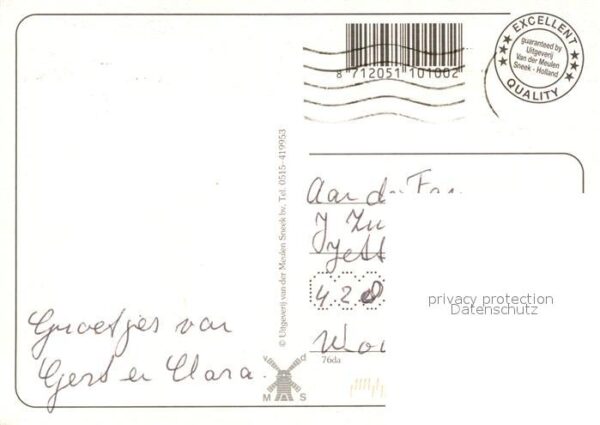 EXCELLENT
guaranteed by
Uitgeverij
Van der Meulen
Sneek - Holland
QUALITY
8 712051 101002
© Uitgeverij van der Meulen Sneek bv. Tel. 0515-419953
Aan de Fam
J Zu
4 2
76da
privacy protection
Datenschutz
Groetjes van
Gert en Clara.
v d
M S